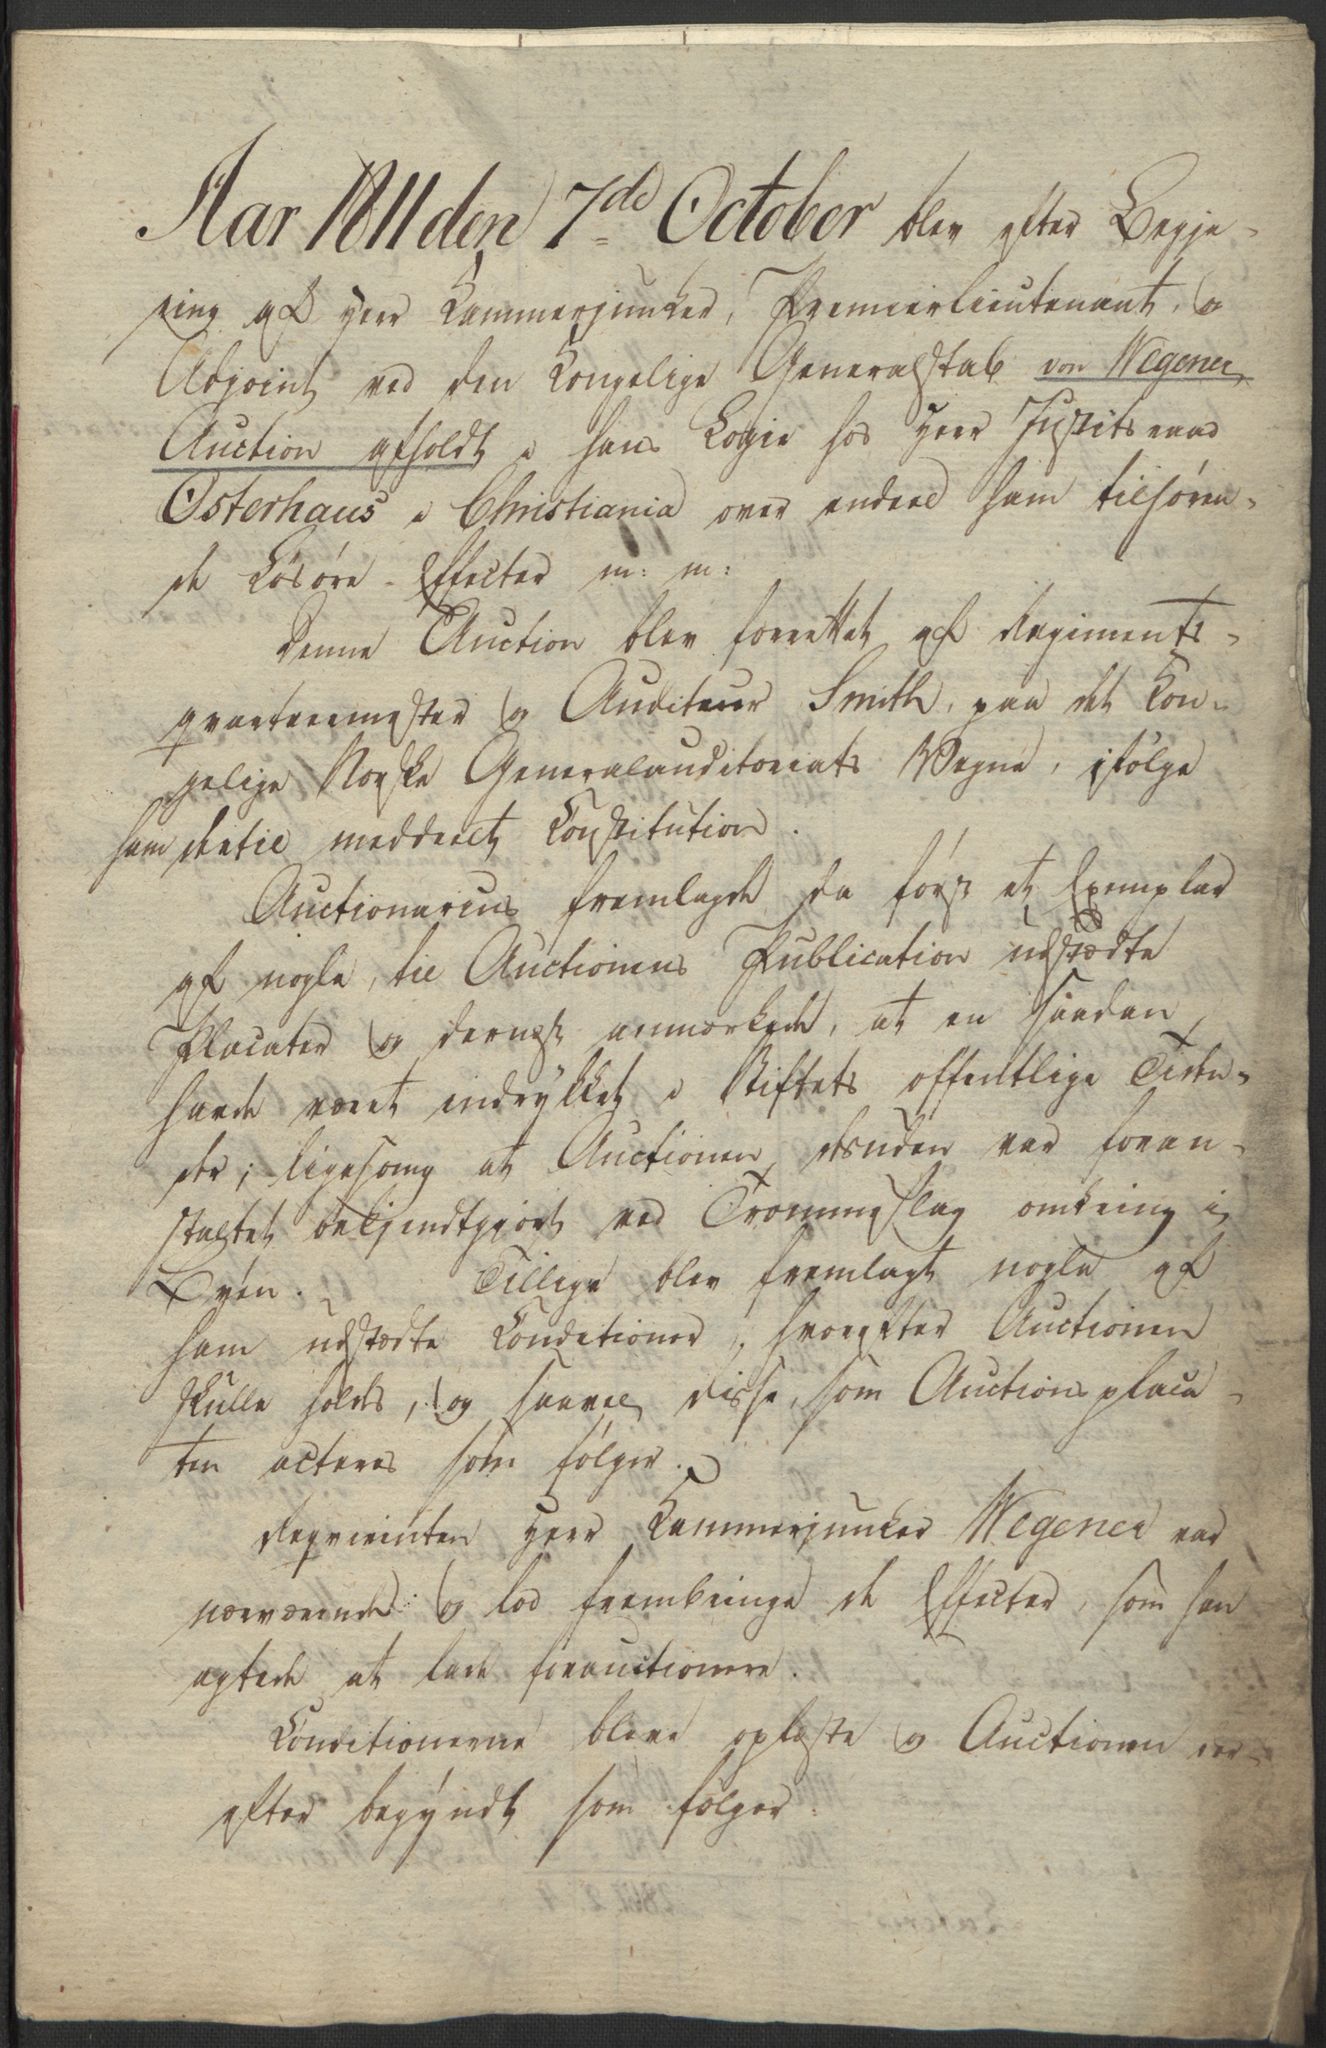 Aar 1811 den 7de October blev efter Begje-
ring af Herr Kammerjunker, Premierlieutenant, og
Adjoint ved den Kongelige Generalstab von Wegener,
Auction afholdt i hans Logie hos Herr Justitsraad
Osterhaus i Christiania over endeel ham tilhøren-
de Løsøre-Effecter m: m:
Denne Auction blev forrettet af Regiments-
qvarteermester og Auditeur Smith, paa det Kon-
gelige Norske Generalauditoriats Vegne, ifølge
ham dertil meddeelt Constitution.
Auctionarius fremlagde da først et Exemplar
af nogle, til Auctionens Publication udstædte
Placater og dernæst anmærkede, at en saadan
havde været indrykket i Stiftets offentlige Tiden-
der; ligesom at Auctionen desuden var foran-
staltet bekjendtgjort ved Trommeslag omkring i
Byen. Tillige blev fremlagt nogle af
ham udstædte Conditioner, hvorefter Auctionen
skulle holdes, og saavel disse, som Auctionsplaca-
ten acteres som følger.
Reqvirenten Herr Kammerjunker Wegener var
nærværende og lod frembringe de Effecter, som han
agtede at lade forauctionere.
Conditionerne bleve oplæste og Auctionen der-
efter begyndt som følger: